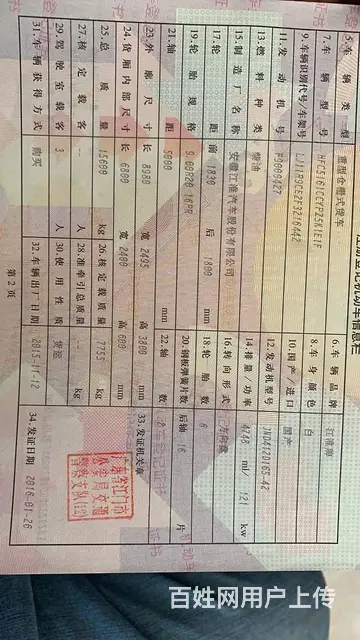 注册登记机动车信息栏
5.车辆类型 重型仓栅式货车 6.车辆品牌 江淮牌
7.车辆型号 8.车身颜色 白
9.车辆识别代号/车架号 10.国产/进口 国产
11.发动机号 12.发动机型号
13.燃料种类 柴油 14.排量/功率 4748 ml/ 121 kw
15.制造厂名称 安徽江淮汽车股份有限公司 16.转向形式 方向盘
17.轮距 前 1830 后 1800 mm 18.轮胎数 6
19.轮胎规格 9.00R20 16PR 20.钢板弹簧片数 后轴 片
21.轴距 5000 mm 22.轴数 2
23.外廓尺寸 长 8980 宽 2495 高 mm 33.发证机关章
24.货厢内部尺寸 长 6800 宽 2400 高 600 mm
25.总质量 15600 kg 26.核定载质量 7755 kg
27.核定载客 人 28.准牵引总质量 kg
29.驾驶室载客 3 人 30.使用性质 货运
31.车辆获得方式 购买 32.车辆出厂日期 2015-11-12 34.发证日期 2016-01-26
第 2 页
百姓网用户上传